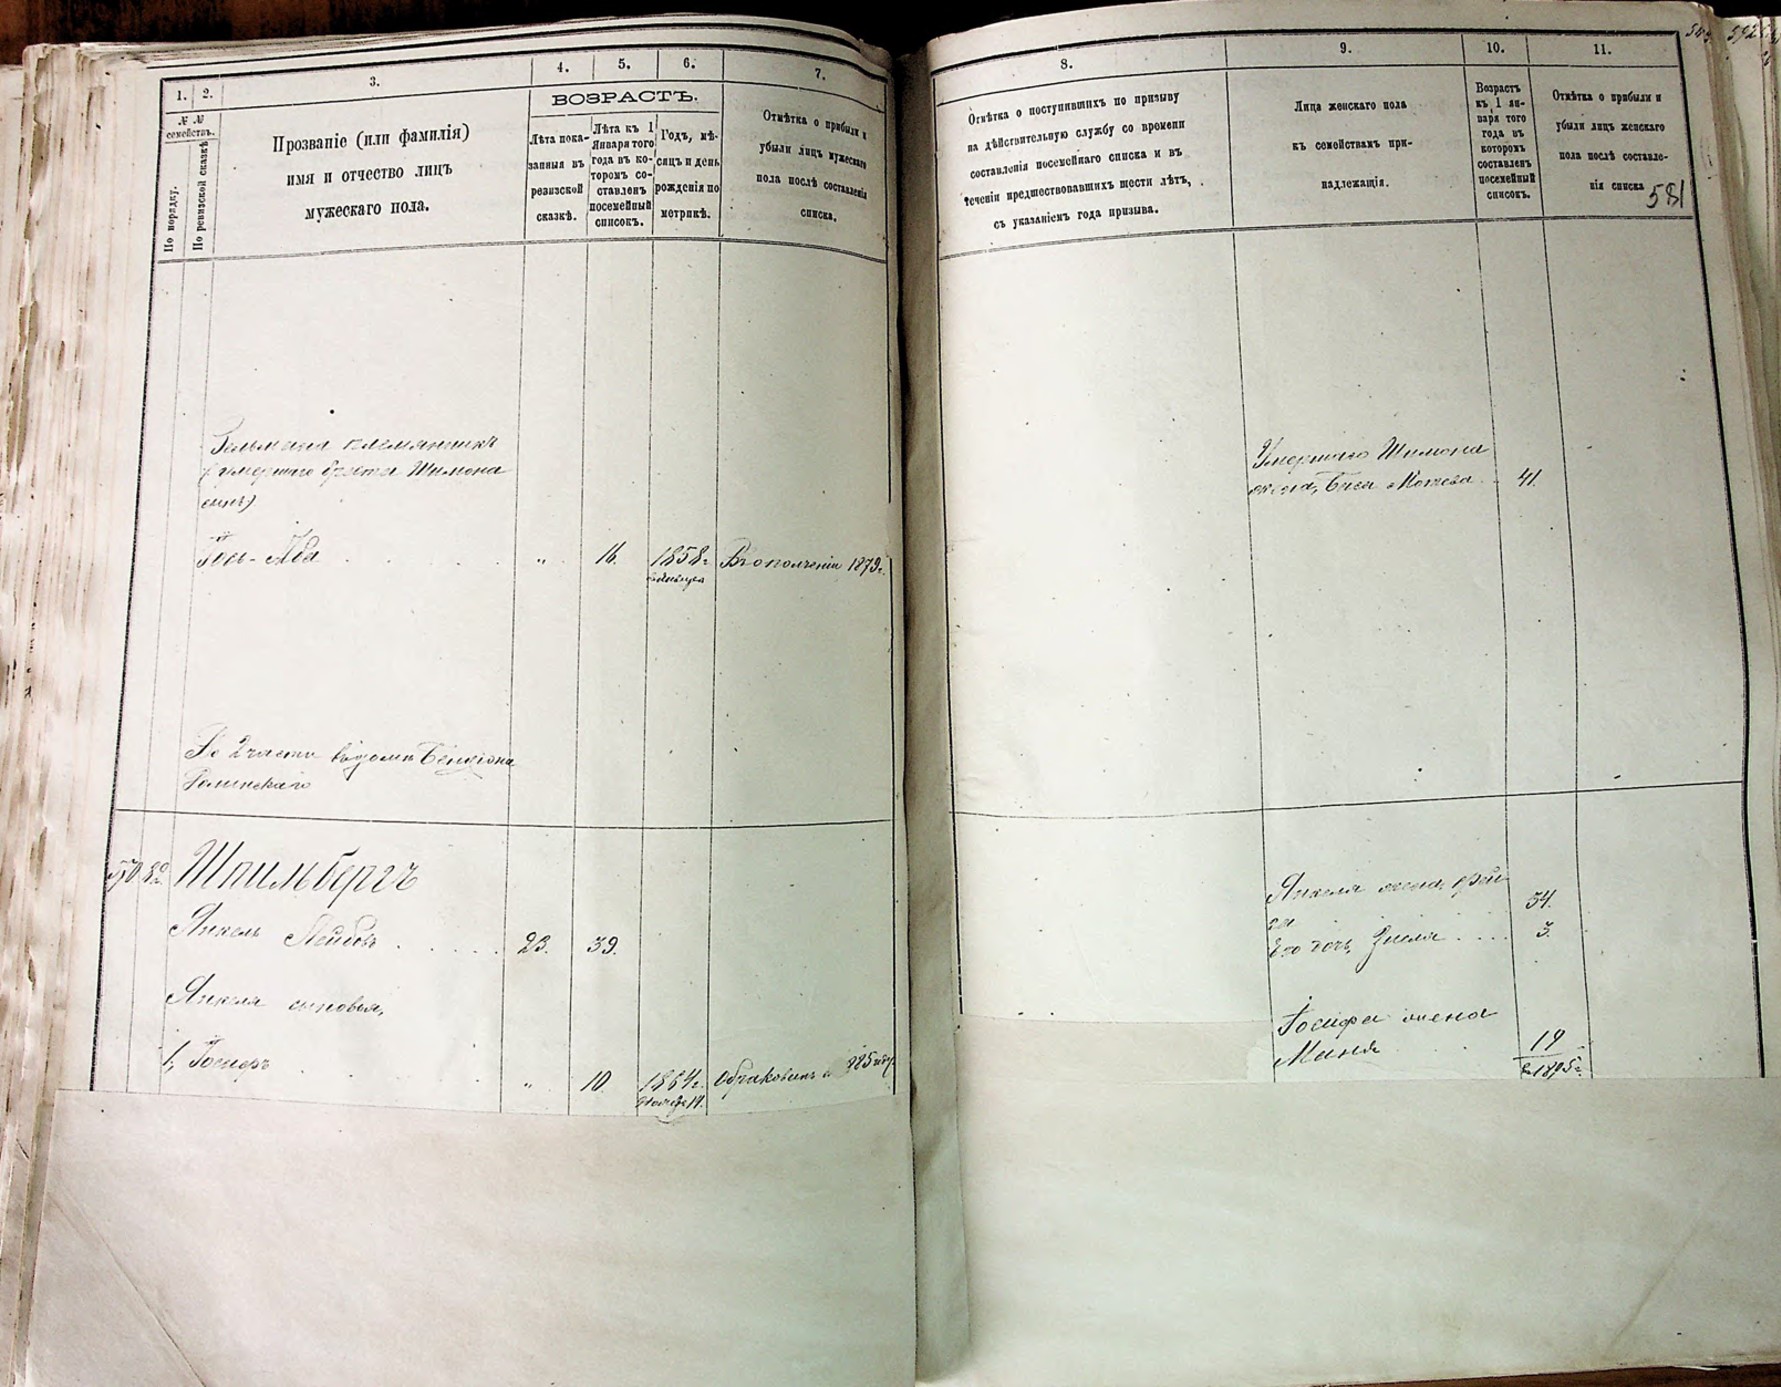 1.
2.
3.
4.
5.
6.
7.
№ №
семействъ.
По порядку.
По ревизской сказкѣ
Прозваніе (или фамилія)
имя и отчество лицъ
мужескаго пола.
ВОЗРАСТЪ.
Лѣта пока-
занныя въ
ревизской
сказкѣ.
Лѣта къ 1
Января того
года въ ко-
торомъ со-
ставленъ
посемейный
списокъ.
Годъ, мѣ-
сяцъ и день
рожденія по
метрикѣ.
Отмѣтка о прибыли и
убыли лицъ мужескаго
пола послѣ составленія
списка.
племянникъ
умершаго брата Шимона
сынъ)
Іось-Аба
"
16.
1858 г.
Въ ополченіи 1879 г.
По 2 части
570
82
Шпильбергъ
Янкель Лейбовъ
23.
39.
Янкеля сыновья,
1, Іосифъ
"
10
1864 г.
Обракованъ в 1885 году
8.
9.
10.
11.
Отмѣтка о поступившихъ по призыву
на дѣйствительную службу со времени
составленія посемейнаго списка и въ
теченіи предшествовавшихъ шести лѣтъ,
съ указаніемъ года призыва.
Лица женскаго пола
къ семействамъ при-
надлежащія.
Возрастъ
къ 1 ян-
варя того
года въ
которомъ
составленъ
посемейный
списокъ.
Отмѣтка о прибыли и
убыли лицъ женскаго
пола послѣ составле-
нія списка
581
Умершаго Шимона
жена, Бася Мовшева
41.
Янкеля жена, Фрей-
да
34.
Его дочь
3.
Іосифа жена
19